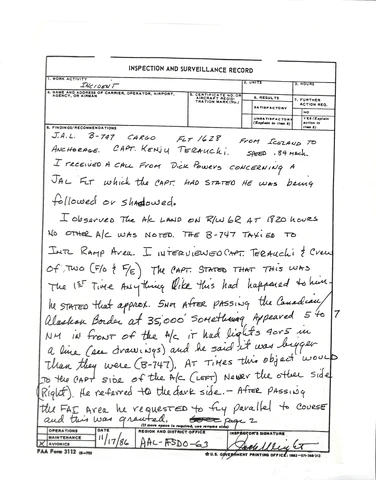 INSPECTION AND SURVEILLANCE RECORD
1. WORK ACTIVITY
2. UNITS
3. HOURS
INCIDENT
4. NAME AND ADDRESS OF CARRIER, OPERATOR, AIRPORT, AGENCY, OR AIRMAN
5. CERTIFICATE NO. OR AIRCRAFT REGISTRATION MARK (No.)
6. RESULTS
7. FURTHER ACTION REQ.
SATISFACTORY
NO
UNSATISFACTORY (Explain in item 8)
YES (Explain action in item 8)
8. FINDINGS/RECOMMENDATIONS
J.A.L. B-747 CARGO FLT 1628 FROM ICELAND TO
ANCHORAGE. CAPT. KENJU TERAUCHI. SPEED .84 Mach.
I RECEIVED A CALL FROM DICK POWERS CONCERNING A
JAL FLT WHICH THE CAPT. HAD STATED HE WAS being
followed or shadowed.
I OBSERVED THE A/C LAND ON R/W 6R AT 1820 HOURS
NO OTHER A/C WAS NOTED. THE B-747 TAXIED TO
INTL RAMP AREA. I INTERVIEWED CAPT. TERAUCHI & CREW
OF TWO (F/O & F/E) THE CAPT. STATED THAT THIS WAS
THE 1ST TIME ANYTHING like this had happened to him.
he STATED that approx. 5NM AFTER PASSING the Canadian/
Alaskan Border at 35,000' Something Appeared 5 to 7
NM in front of the A/C it had lights 4 or 5 in
a line (see drawings) and he said it was bigger
than they were (B-747). AT TIMES this object WOULD
TO the CAPT side of the A/C (LEFT) NEVER the other side
(Right). He referred to the dark side. - AFTER PASSING
the FAI Area he requested to fly parallel to COURSE
and this was granted. page 2
(If more space is required, use reverse side)
OPERATIONS
MAINTENANCE
X AVIONICS
DATE
11/17/86
REGION AND DISTRICT OFFICE
AAL-FSDO-63
INSPECTOR'S SIGNATURE
Jack Wright
FAA Form 3112
U.S. GOVERNMENT PRINTING OFFICE: